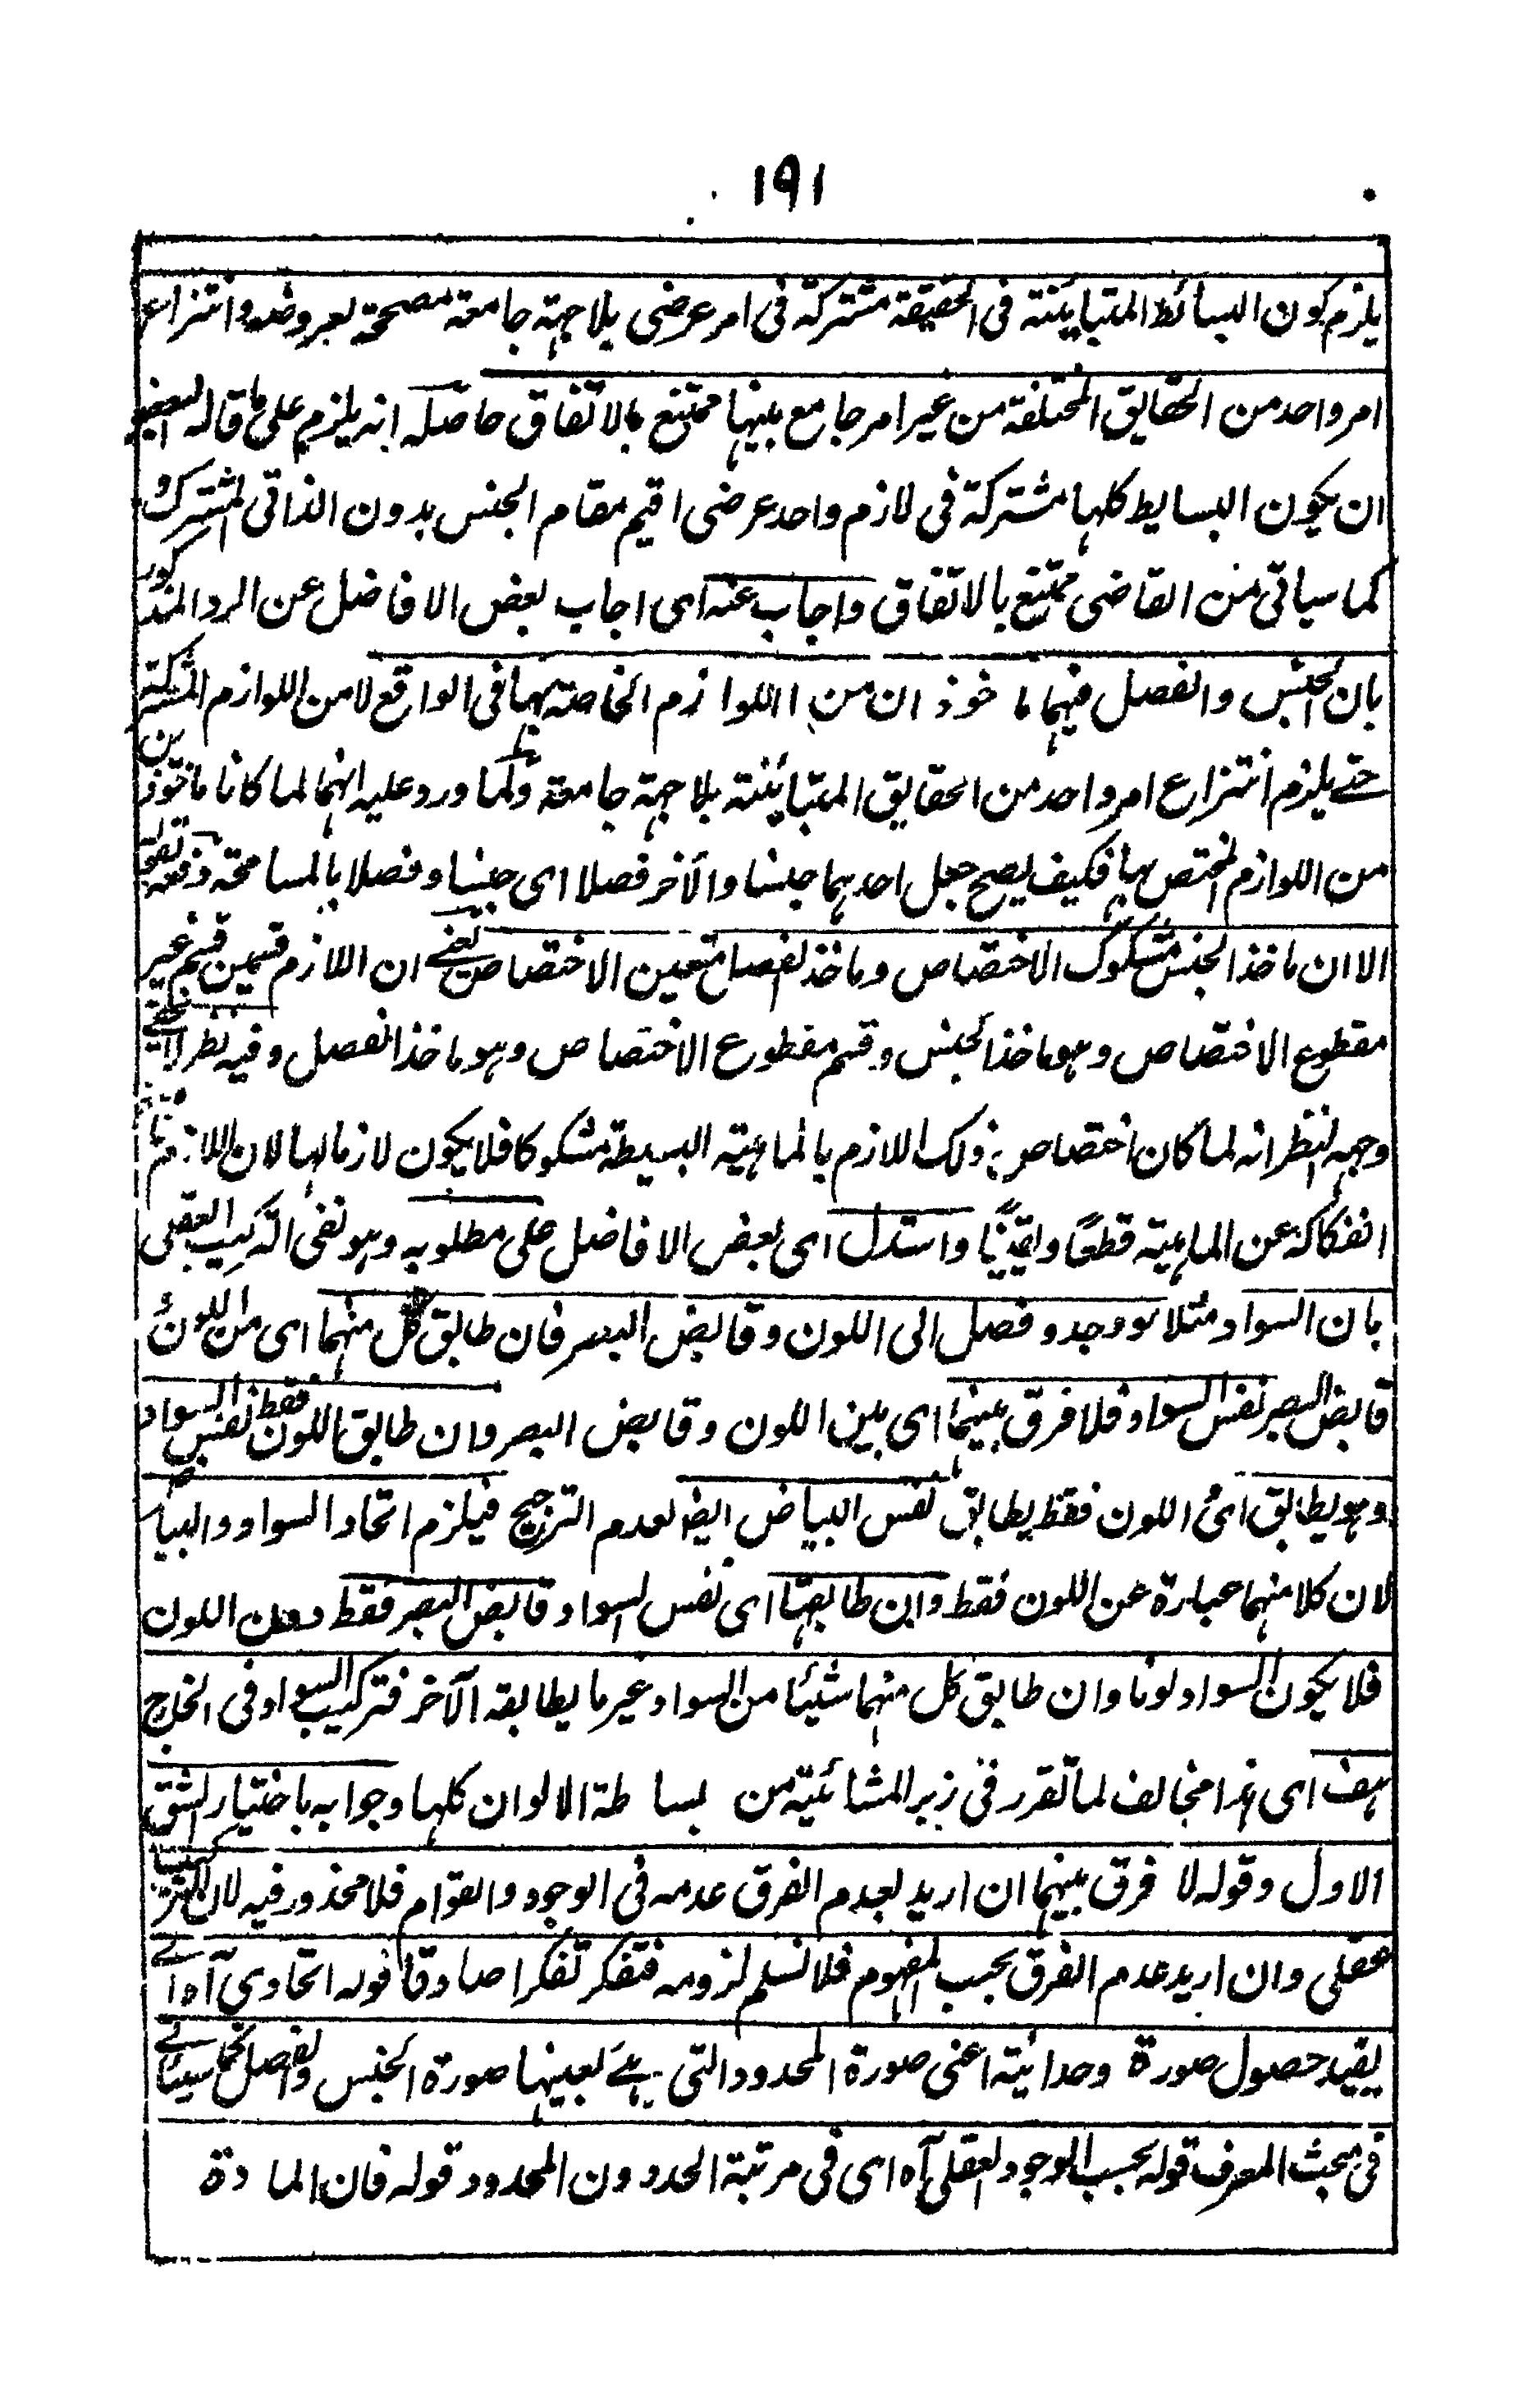 ١٩١
يلزم كون البسائط المتبائنة فى الحقيقة مشتركة فى امر عرضى بلا جهة جامعة مصححة لعروضه وانتزاع
امر واحد من الحقايق المختلفة من غير امر جامع بينها ممتنع بالاتفاق حاصله انه يلزم على ما قاله البعض
ان يكون البسايط كلها مشتركة فى لازم واحد عرضى اقيم مقام الجنس بدون الذاتى المشترك و
كما سياتى من القاضى ممتنع بالاتفاق واجاب عنه اى اجاب بعض الافاضل عن الرد المذكور
بان الجنس والفصل فيهما ماخوذان من اللوازم الخاصة بهما فى الواقع لا من اللوازم المشتركة
حتے يلزم انتزاع امر واحد من الحقايق المتبائنة بلا جهة جامعة ولما ورد عليه انهما لما كانا ماخوذين
من اللوازم المختص بها فكيف يصح جعل احدهما جنسا والآخر فصلا اى جنسا وفصلا بالمسامحة دفعه بقوله
الا ان ماخذ الجنس مشكوك الاختصاص وماخذ الفصل متعين الاختصاص يعنے ان اللازم قسمين قسم غير
مقطوع الاختصاص وهو ماخذ الجنس وقسم مقطوع الاختصاص وهو ماخذ الفصل وفيه نظر لا يخفے
وجه النظر انه لما كان اختصاص ذلك اللازم بالماهية البسيطة مشكوكا فلا يكون لازما لها لان اللازم
انفكاكه عن الماهية قطعًا ويقينًا واستدل اى بعض الافاضل على مطلوبه وهو نفى التركيب العقلى
بان السواد مثلا لو وجد وفصل الى اللون وقابض البصر فان طابق كل منهما اى من اللون و
قابض البصر نفس السواد فلا فرق بينهما اى بين اللون وقابض البصر وان طابق اللون فقط نفس السواد
وهو يطابق اى اللون فقط يطابق نفس البياض ايضا لعدم الترجيح فيلزم اتحاد السواد والبياض
لان كلا منهما عبارة عن اللون فقط وان طابقها اى نفس السواد قابض البصر فقط دون اللون
فلا يكون السواد لونا وان طابق كل منهما شيئا من السواد غير ما يطابقه الآخر فتركيب السواد فى الخارج
هف اى هذا مخالف لما تقرر فى زبر المشائية من بساطة الالوان كلها وجوابه باختيار الشق
الاول وقوله لا فرق بينهما ان اريد بعدم الفرق عدمه فى الوجود والقوام فلا محذور فيه لان التركيب
عقلى وان اريد عدم الفرق بحسب المفهوم فلا نسلم لزومه فتفكر تفكرا صادقا قوله اتحادى آه اے
يفيد حصول صورة وحدانية اعنى صورة المحدود التى هے بعينها صورة الجنس والفصل كما سياتے
فى مبحث المعرف قوله بحسب الوجود العقلى آه اى فى مرتبة الحد دون المحدود قوله فان المادة